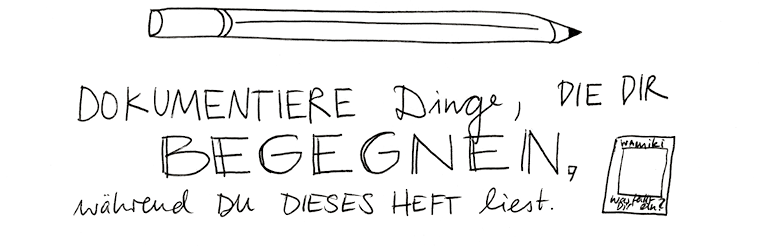 DOKUMENTIERE Dinge, DIE DIR
BEGEGNEN,
während DU DIESES HEFT liest.
wamiki
Was fällt
Dir ein?